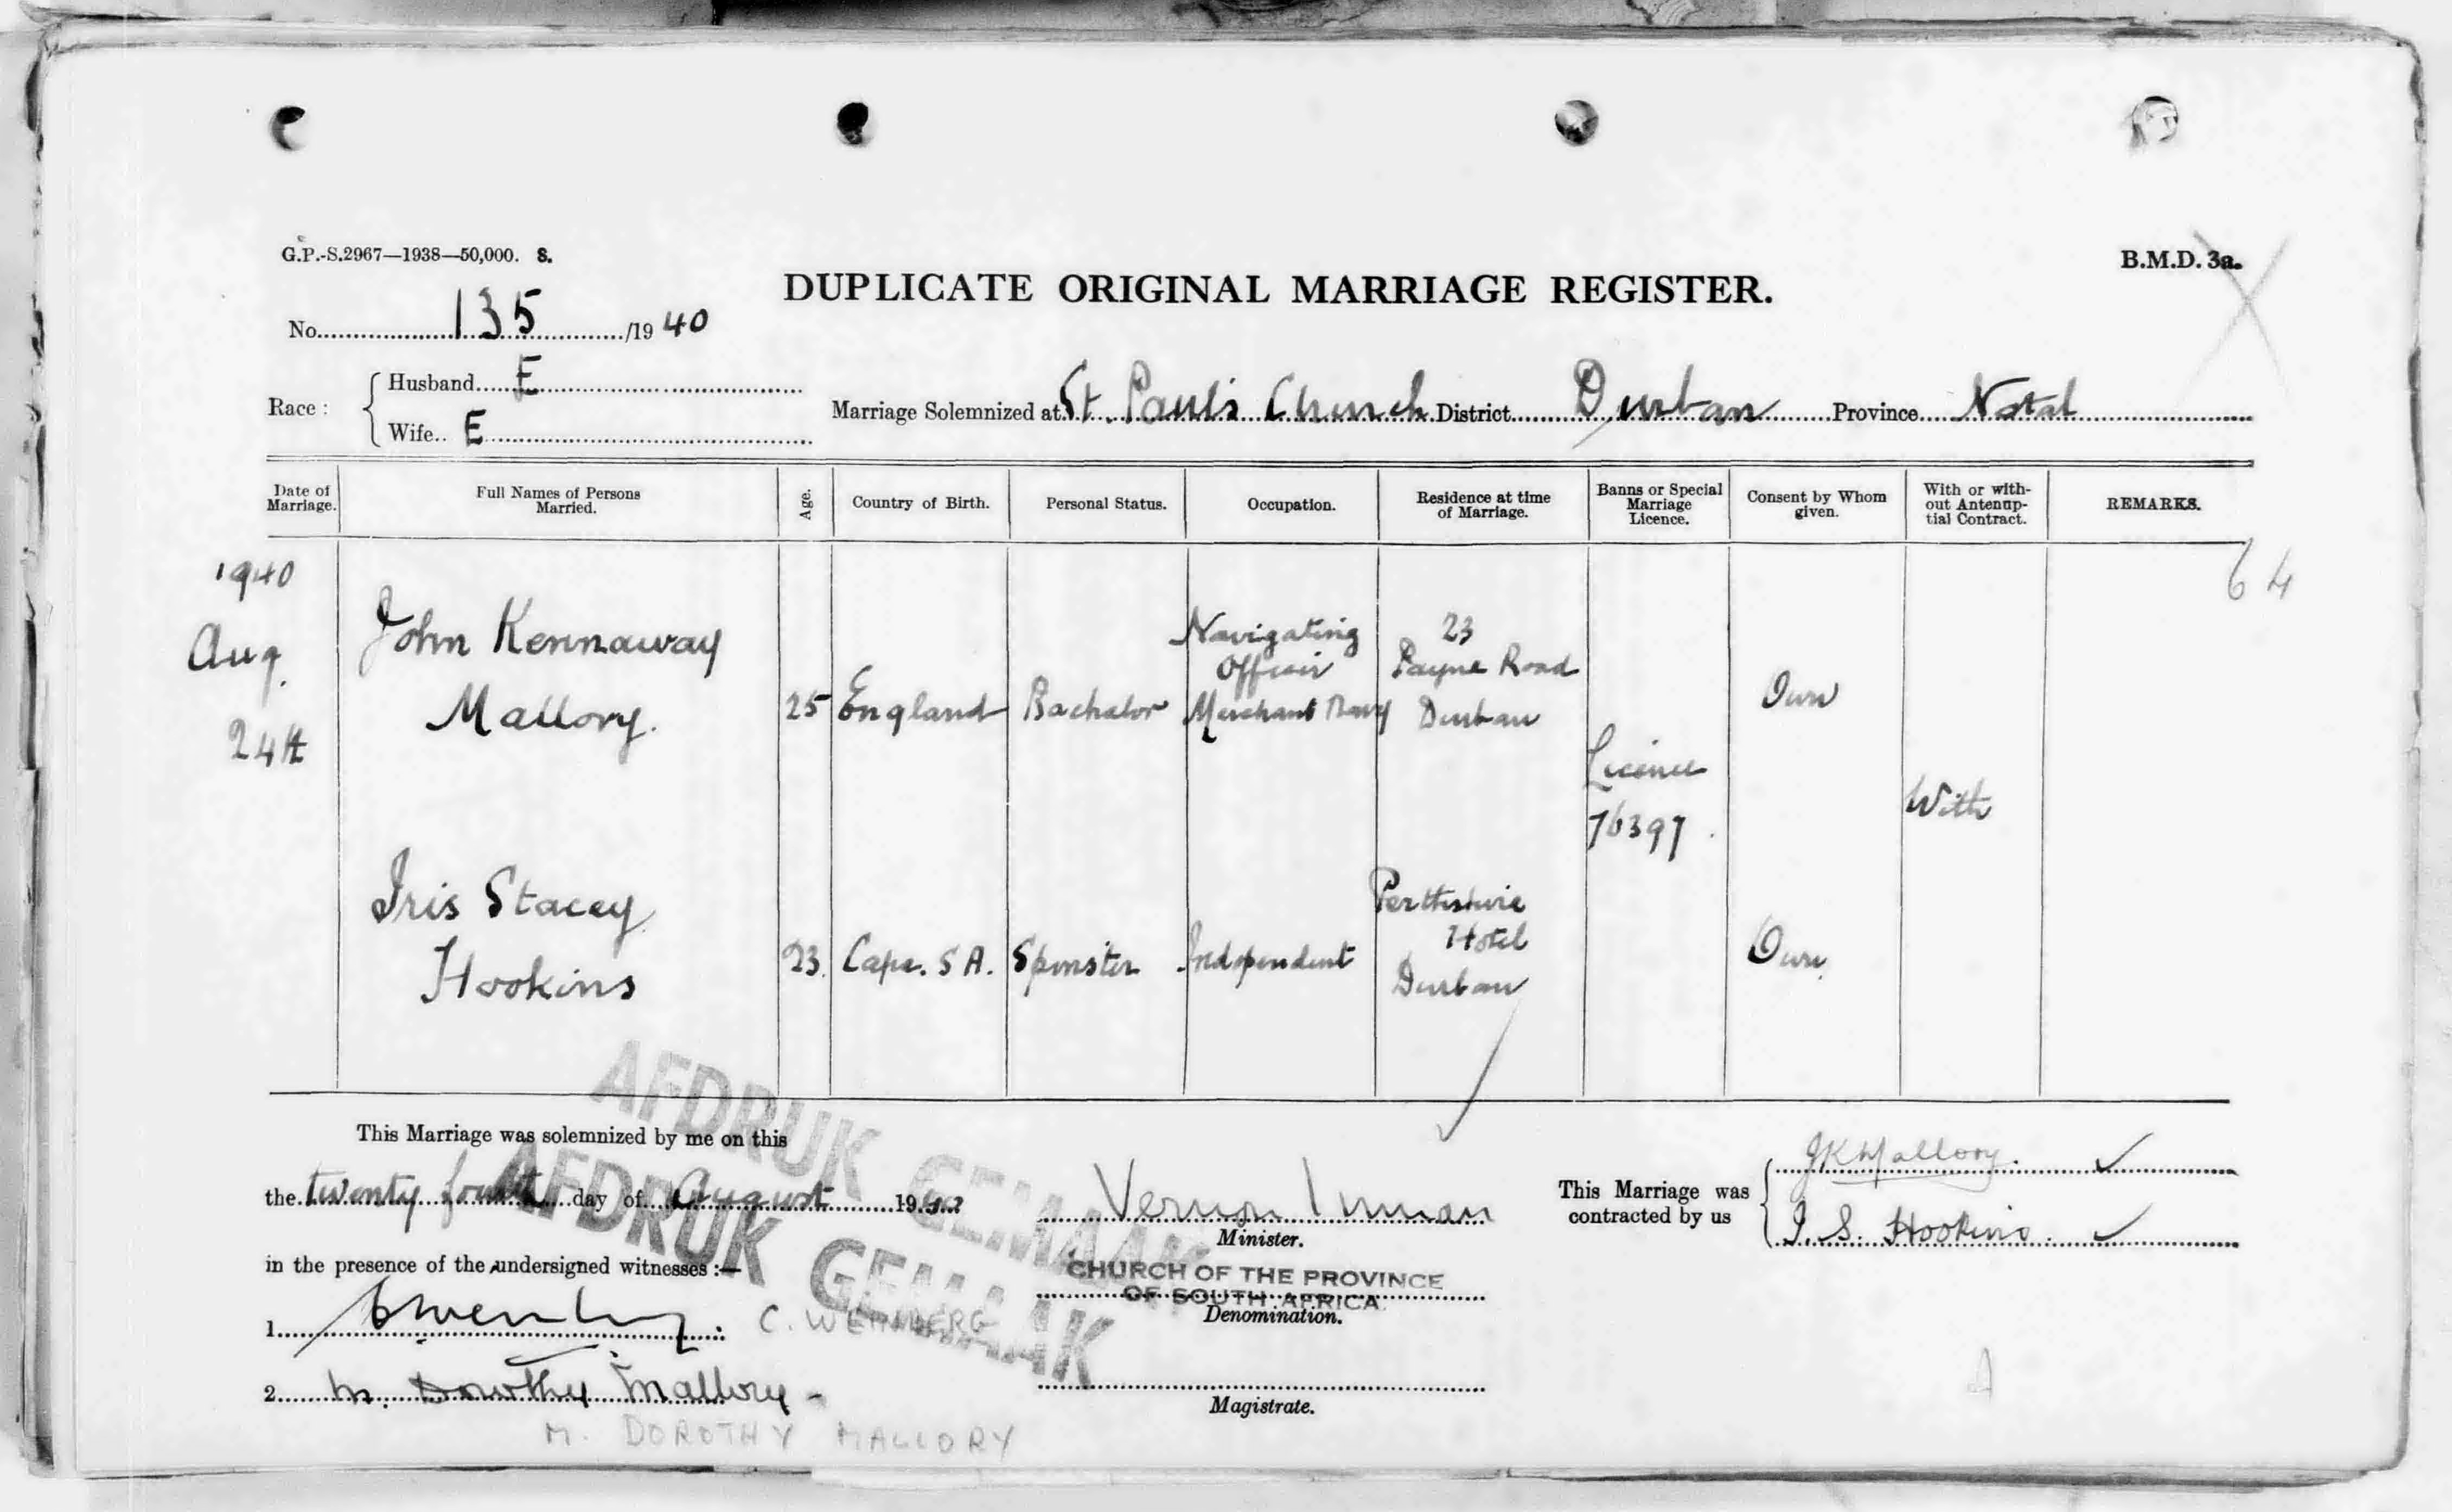 G.P.-S.2967—1938—50,000. S.
B.M.D. 3a.
DUPLICATE ORIGINAL MARRIAGE REGISTER.
No. 135 /1940
Race :
Husband E
Wife E
Marriage Solemnized at St. Paul's Church District Durban Province Natal
Date of Marriage.
Full Names of Persons Married.
Age.
Country of Birth.
Personal Status.
Occupation.
Residence at time of Marriage.
Banns or Special Marriage Licence.
Consent by Whom given.
With or without Antenuptial Contract.
REMARKS.
64
1940
Aug.
24th
John Kennaway
Mallory.
25
England
Bachelor
Navigating
Officer
Merchant Navy
23
Payne Road
Durban
Own
Licence
76397.
With
Iris Stacey
Hookins
23.
Cape. S A.
Spinster
Independent
Perthshire
Hotel
Durban
Own
AFDRUK GEMAAK
AFDRUK GEMAAK
This Marriage was solemnized by me on this
the twenty fourth day of August 1940
in the presence of the undersigned witnesses :—
1.
C. WEINBERG
2. M. Dorothy Mallory
M. DOROTHY MALLORY
Vernon Inman
Minister.
CHURCH OF THE PROVINCE
OF SOUTH AFRICA
Denomination.
Magistrate.
This Marriage was
contracted by us
JKMallory.
I. S. Hookins.